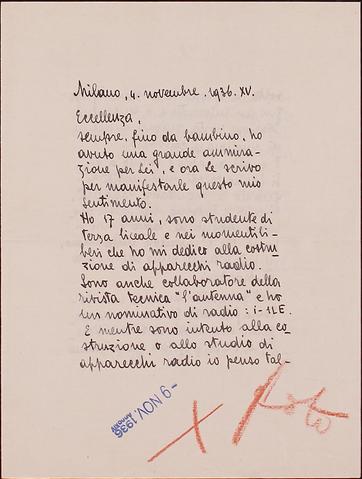 Milano, 4. novembre. 1936. XV.
Eccellenza,
sempre, fino da bambino, ho
avuto una grande ammira-
zione per Lei, e ora Le scrivo
per manifestarle questo mio
sentimento.
Ho 17 anni, sono studente di
terza liceale e nei momenti li-
beri che ho mi dedico alla costru-
zione di apparecchi radio.
Sono anche collaboratore della
rivista tecnica "l'antenna" e ho
un nominativo di radio: i-1LE.
E mentre sono intento alla co-
struzione o allo studio di
apparecchi radio io penso tal-
- 9 NOV. 1936
Anno XV
X foto